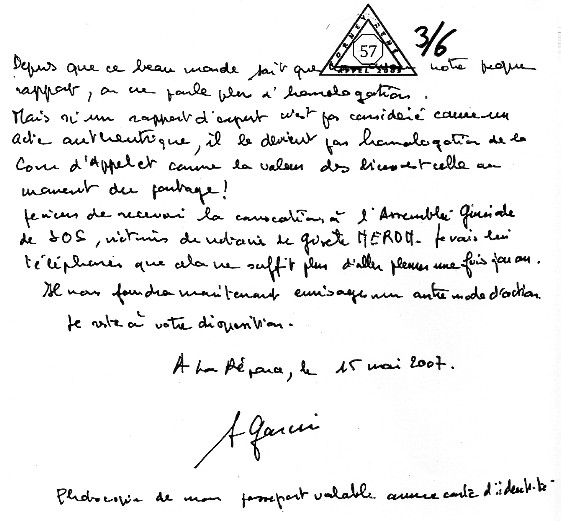 BORNET RENE
57
3/6
Depuis que ce beau monde sait que notre
rapport, on ne parle plus d'homologation.
Mais si un rapport d'expert n'est pas considéré comme un
Acte authentique, il le devient par homologation de la
Cour d'Appel et comme la valeur des biens est celle au
moment du partage!
Je viens de recevoir la convocation à l'Assemblée Générale
de SOS, victimes de notaire de Gisèle MEROM. Je vais lui
téléphoner que cela ne suffit plus d'aller pleurer une fois par an.
Il nous faudra maintenant envisager un autre mode d'action.
Je reste à votre disposition.
A La Dépara, le 15 mai 2007.
A Garcin
Photocopie de mon passeport valable comme carte d'identité